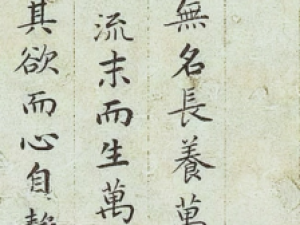 無名長養萬
流末而生萬
其欲而心自